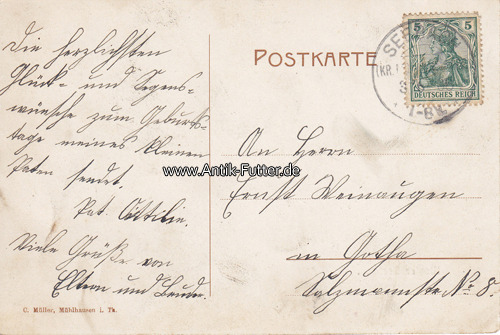 Die herzlichsten
Glück- und Segens-
wünsche zum Geburts-
tage meines kleinen
Paten sendet
Pat. Ottilie.
Viele Grüße von
Eltern und
C. Müller, Mühlhausen i. Th.
POSTKARTE
5 5
DEUTSCHES REICH
SEE
(KR.
7-8
www.Antik-Futter.de
An Herrn
Ernst Weinaugen
in Gotha
Salzmannstr. No 8.